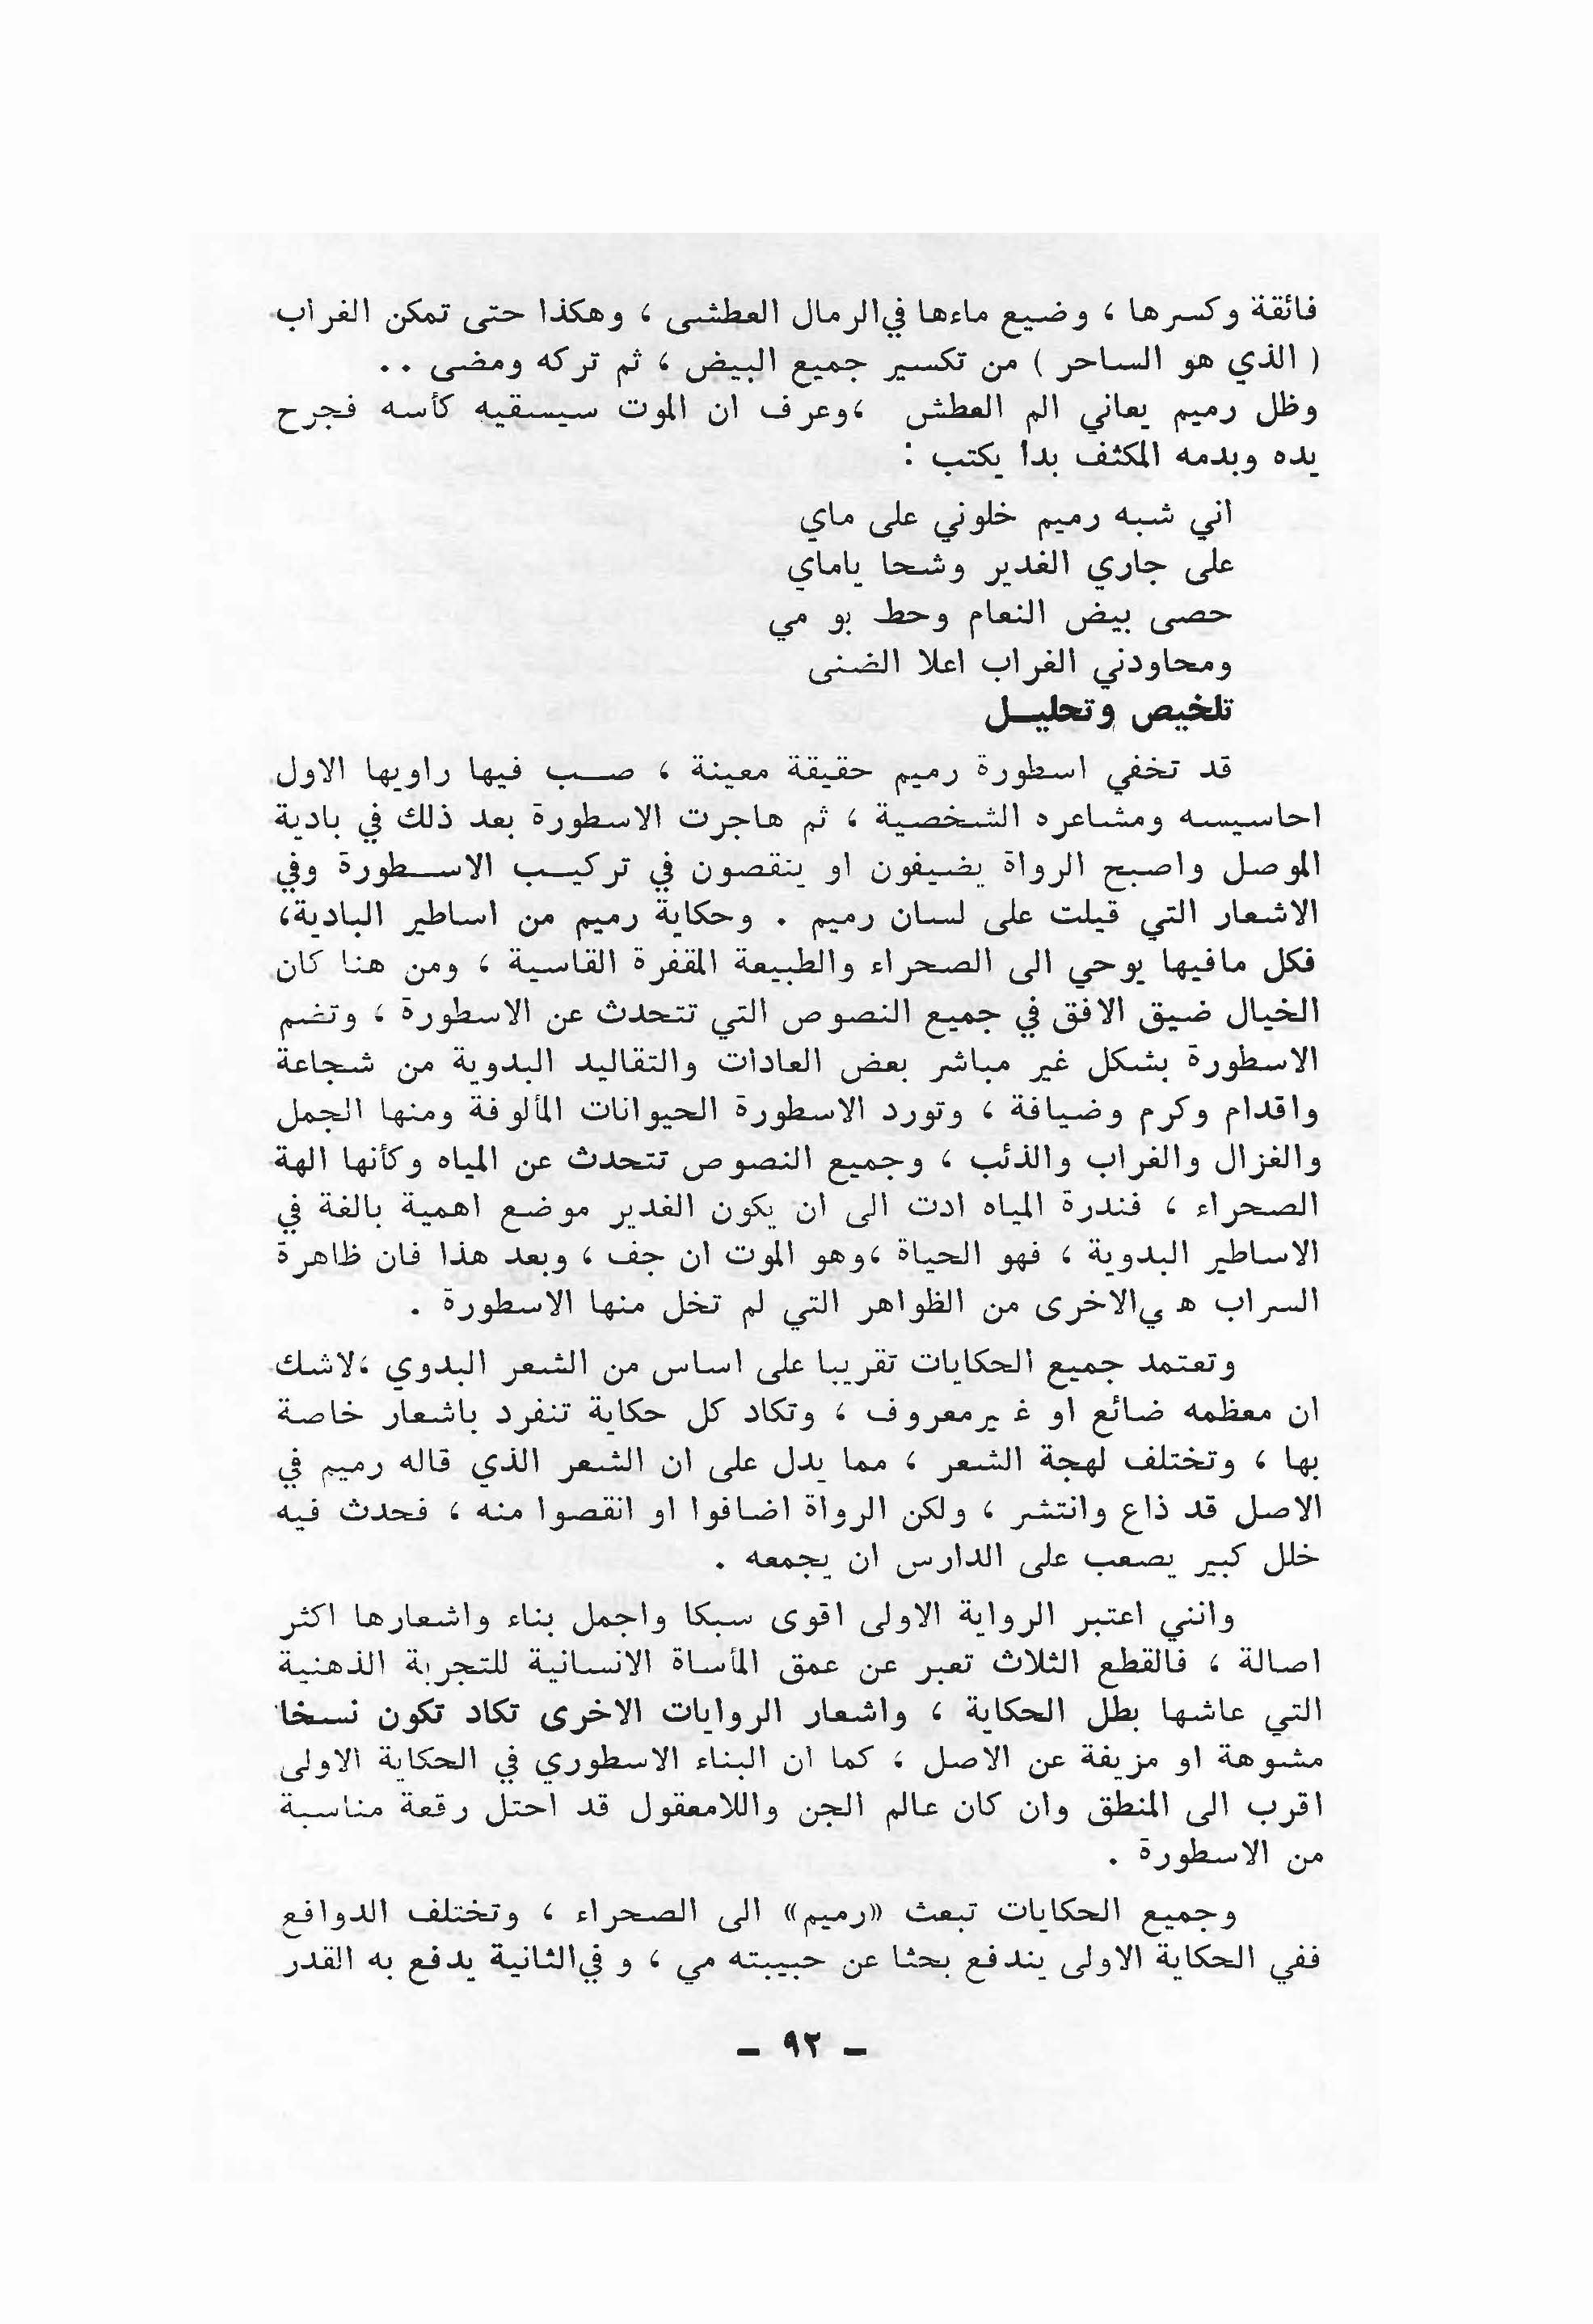 فائقة وكسرها ، وضيع ماءها في الرمال العطشى ، وهكذا حتى تمكن الغراب
( الذي هو الساحر ) من تكسير جميع البيض ، ثم تركه ومضى ..
وظل رميم يعاني الم العطش ،وعرف ان الموت سيسقيه كأسه فجرح
يده وبدمه المكثف بدأ يكتب :
اني شبه رميم خلوني على ماي
على جاري الغدير وشحا ياماي
حصى بيض النعام وحط بو مي
ومحاودني الغراب اعلا الضنى
تلخيص وتحليل
قد تخفي اسطورة رميم حقيقة معينة ، صب فيها راويها الاول
احاسيسه ومشاعره الشخصية ، ثم هاجرت الاسطورة بعد ذلك في بادية
الموصل واصبح الرواة يضيفون او ينقصون في تركيب الاسطورة وفي
الاشعار التي قيلت على لسان رميم . وحكاية رميم من اساطير البادية،
فكل مافيها يوحي الى الصحراء والطبيعة المقفرة القاسية ، ومن هنا كان
الخيال ضيق الافق في جميع النصوص التي تتحدث عن الاسطورة ، وتضم
الاسطورة بشكل غير مباشر بعض العادات والتقاليد البدوية من شجاعة
واقدام وكرم وضيافة ، وتورد الاسطورة الحيوانات المألوفة ومنها الجمل
والغزال والغراب والذئب ، وجميع النصوص تتحدث عن المياه وكأنها الهة
الصحراء ، فندرة المياه ادت الى ان يكون الغدير موضع اهمية بالغة في
الاساطير البدوية ، فهو الحياة ،وهو الموت ان جف ، وبعد هذا فان ظاهرة
السراب هي الاخرى من الظواهر التي لم تخل منها الاسطورة .
وتعتمد جميع الحكايات تقريبا على اساس من الشعر البدوي ،لاشك
ان معظمه ضائع او غير معروف ، وتكاد كل حكاية تنفرد باشعار خاصة
بها ، وتختلف لهجة الشعر ، مما يدل على ان الشعر الذي قاله رميم في
الاصل قد ذاع وانتشر ، ولكن الرواة اضافوا او انقصوا منه ، فحدث فيه
خلل كبير يصعب على الدارس ان يجمعه .
وانني اعتبر الرواية الاولى اقوى سبكا واجمل بناء واشعارها اكثر
اصالة ، فالقطع الثلاث تعبر عن عمق المأساة الانسانية للتجربة الذهنية
التي عاشها بطل الحكاية ، واشعار الروايات الاخرى تكاد تكون نسخا
مشوهة او مزيفة عن الاصل ، كما ان البناء الاسطوري في الحكاية الاولى
اقرب الى المنطق وان كان عالم الجن واللامعقول قد احتل رقعة مناسبة
من الاسطورة .
وجميع الحكايات تبعث «رميم» الى الصحراء ، وتختلف الدوافع
ففي الحكاية الاولى يندفع بحثا عن حبيبته مي ، و في الثانية يدفع به القدر
– ٩٢ –